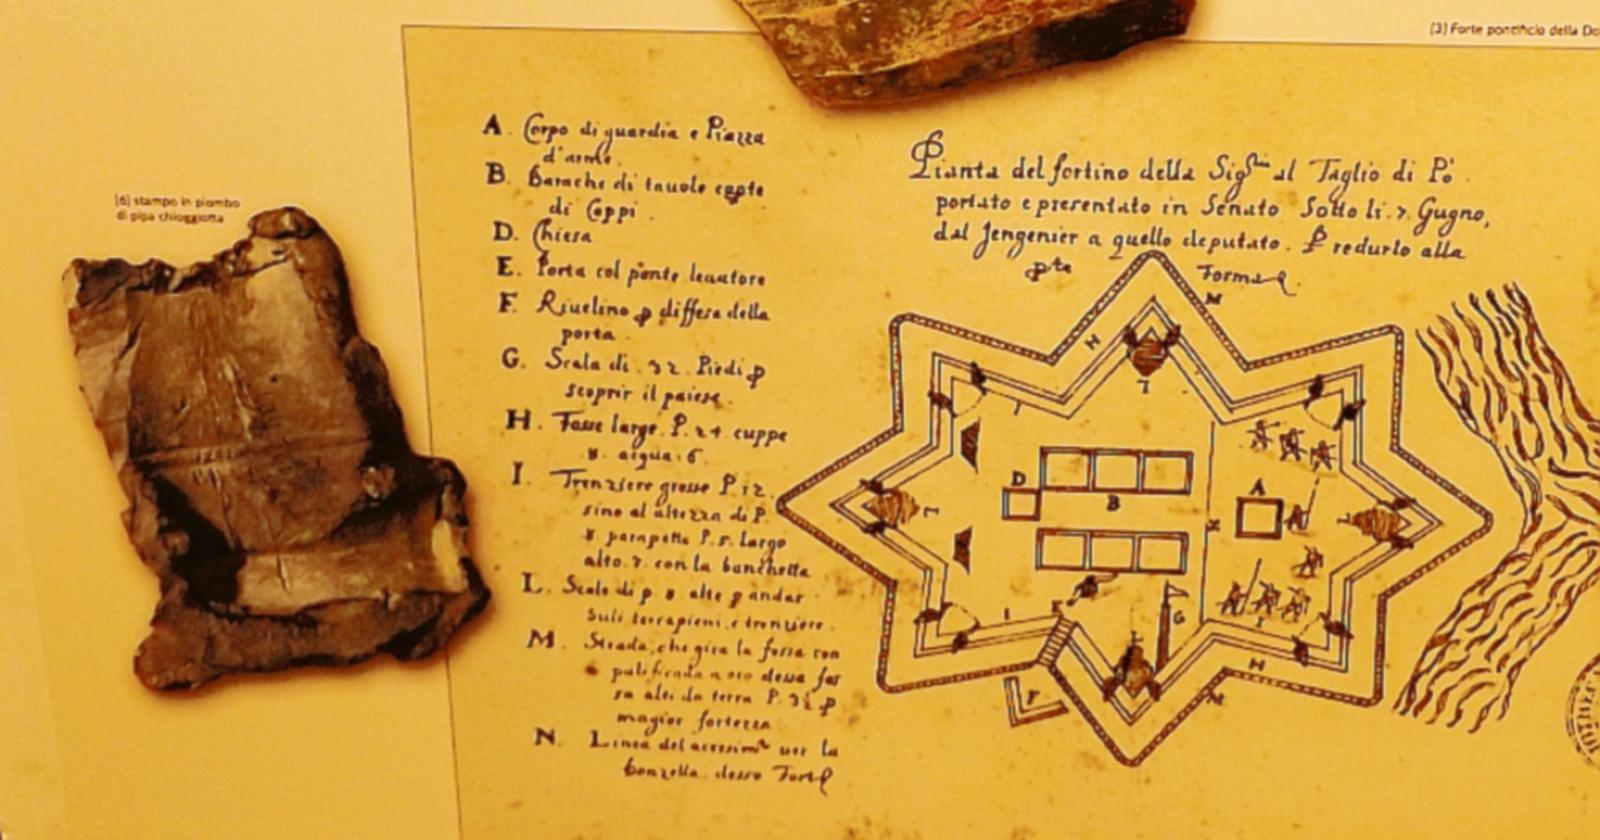 [3] Forte pontificio della
[6] stampo in piombo
di pipa chioggiotta
A. Corpo di guardia e Piazza
d'arme.
B. Barache di tauole copte
di Coppi.
D. Chiesa
E. Porta col ponte leuatore
F. Riuelino p diffesa della
porta.
G. Scala di 32 Piedi p
scoprir il paiese.
H. Fosse large P. 24 cuppe
8. acqua. 6.
I. Trenziere grosse P. 12.
sino al altezza di P.
8 parapetto P. 5. largo
alto. 7. con la banchetta
L. Scale di p. 8 alte p andar
Suli terrapieni, e trenziere.
M. Strada, che gira la fossa con
palificada a oro dessa fos
sa alti da terra P. 3½ p
magior fortezza
N. Linea del uer la
donzella desso Forte
Pianta del fortino della Sig.ria al Taglio di Pò.
portato e presentato in Senato Sotto li. 7. Gugno,
dal Jengenier a quello deputato. P redurlo alla
pte Forma
M
H
L
I
D
B
A
L
N
L
I
E
G
L
I
H
M
F